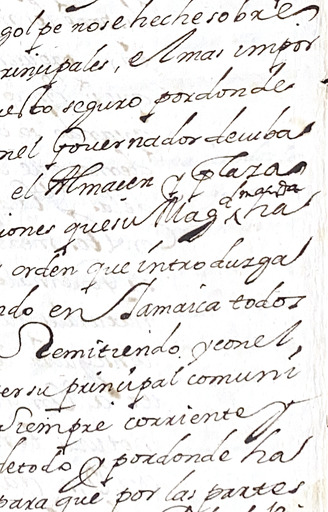 golpe nose heche sobre
principales, el mas impor
puesto seguro por donde
nel Governador decuba
el Almacen y Plaza
iones quesu Mag.d manda ha
orden que introduzga
ndo en Jamaica todos
Remitiendo, y con el
er su principal comuni
siempre corriente y
detodo y pordonde ha
para que por las partes